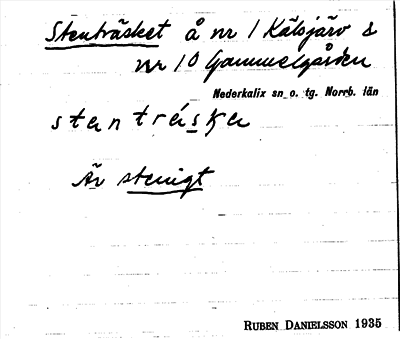 Stenträsket å nr 1 Kälsjärv &
nr 10 Gammelgården
Nederkalix sn o. tg. Norrb. län
stentrásķe
Är stenigt
RUBEN DANIELSSON 1935